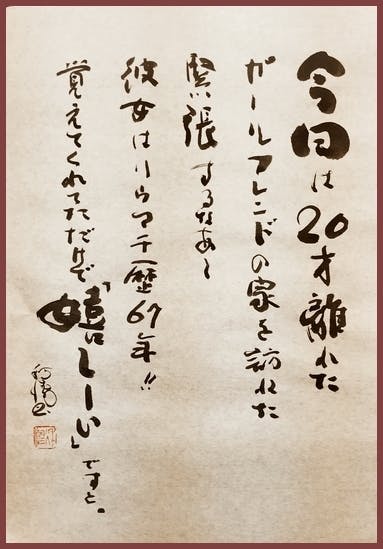 今日は20才離れた
ガールフレンドの家を訪れた
緊張するなあ〜
彼女はリウマチ歴67年!!
覚えてくれてただけで「嬉しーい」ですと。